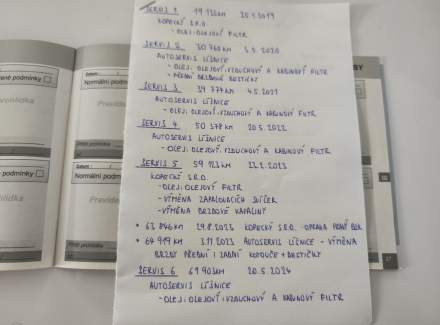 SERVIS 1 19 132KM 20.5.2019
KOPECKÝ S.R.O.
- OLEJ, OLEJOVÝ FILTR
SERVIS 2 30 760KM 5.5.2020
AUTOSERVIS LÍŠNICE
- OLEJ, OLEJOVÝ, VZDUCHOVÝ A KABINOVÝ FILTR
+ PŘEDNÍ BRZDOVÉ DESTIČKY
SERVIS 3 39 777KM 4.5.2021
AUTOSERVIS LÍŠNICE
- OLEJ, OLEJOVÝ, VZDUCHOVÝ A KABINOVÝ FILTR
SERVIS 4 50 378KM 20.5.2022
AUTOSERVIS LÍŠNICE
- OLEJ, OLEJOVÝ, VZDUCHOVÝ A KABINOVÝ FILTR
SERVIS 5 59 123KM 22.2.2023
KOPECKÝ S.R.O.
- OLEJ, OLEJOVÝ FILTR
- VÝMĚNA ZAPALOVACÍCH SVÍČEK
- VÝMĚNA BRZDOVÉ KAPALINY
* 63 846KM 29.8.2023 KOPECKÝ S.R.O. - OPRAVA PRAVÝ BOK
* 64 919KM 3.11.2023 AUTOSERVIS LÍŠNICE - VÝMĚNA
BRZDY PŘEDNÍ I ZADNÍ KOTOUČE + DESTIČKY
SERVIS 6 69 903KM 20.5.2024
AUTOSERVIS LÍŠNICE
- OLEJ, OLEJOVÝ, VZDUCHOVÝ A KABINOVÝ FILTR
podmínky
Datum
Normální podm
Prohlídka
podmínky
Datum
Normální podm